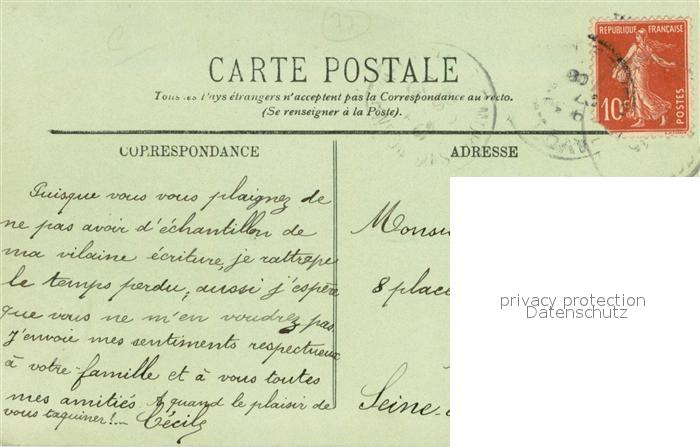 CARTE POSTALE
Tous les Pays étrangers n'acceptent pas la Correspondance au recto.
(Se renseigner à la Poste).
REPUBLIQUE FRANÇAISE
10
POSTES
CORRESPONDANCE
Puisque vous vous plaignez de
ne pas avoir d'échantillon de
ma vilaine écriture, je rattrape
le temps perdu, aussi j'espère
que vous ne m'en voudrez pas.
J'envoie mes sentiments respectueux
à votre famille et à vous toutes
mes amitiés. A quand le plaisir de
vous taquiner!.. Cécile
ADRESSE
Monsi
8 place
Seine-
privacy protection
Datenschutz